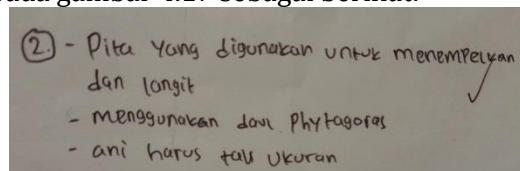 pada gambar 4.27 sebagai berikut:
2. - Pita yang digunakan untuk menempelkan
dan langit
- menggunakan dalil Phytagoras
- ani harus tau ukuran